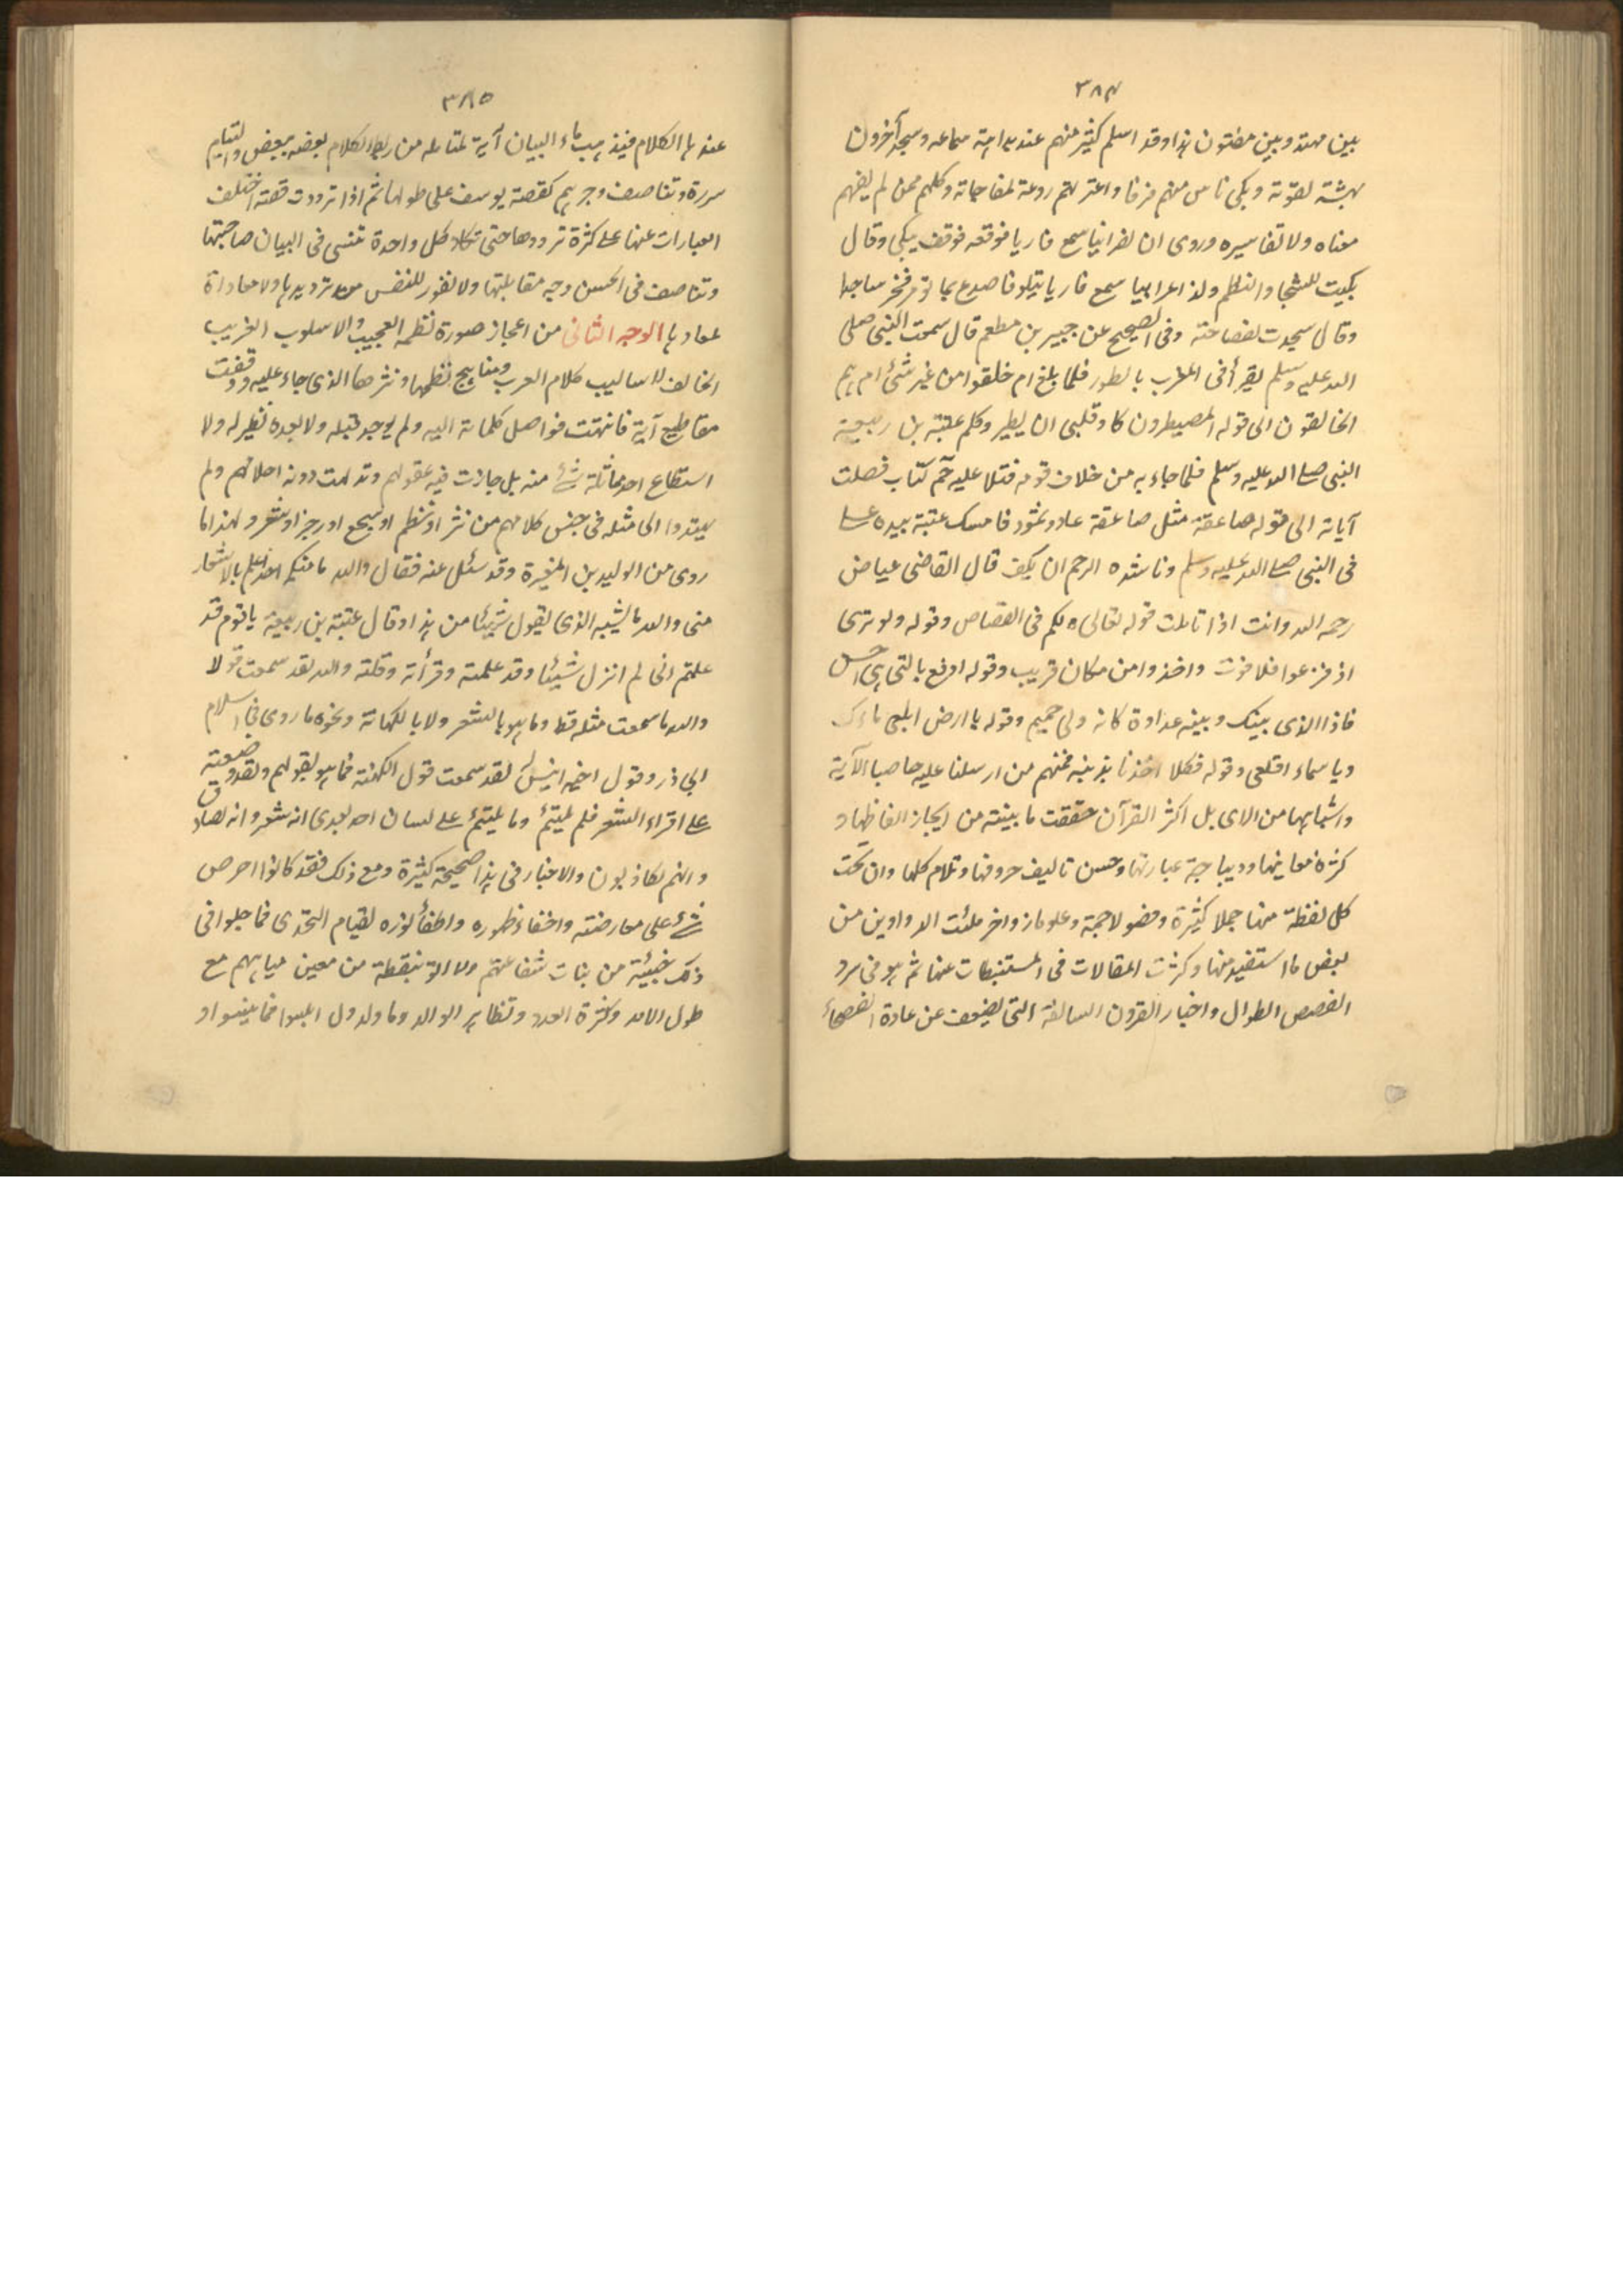 ٣٨٤
بين مهتد وبين مفتون هذا وقد اسلم كثير منهم عند بداهة سماعه وسجد آخرون
لقوته وبكى ناس منهم فرقا واعترتهم روعة لمفاجاته وكلهم ممن لم يفهم
معناه ولا تفاسيره وروى ان نصرانيا سمع قاريا فوقف يبكي وقال
بكيت للشجا والنظم ولذا اعرابيا سمع قاريا يتلو فاصدع بما تؤمر فخر ساجدا
وقال سجدت لفصاحته وفي الصحيح عن جبير بن مطعم قال سمعت النبي صلى
الله عليه وسلم يقرأ في المغرب بالطور فلما بلغ ام خلقوا من غير شئ ام هم
الخالقون الى قوله المصيطرون كاد قلبي ان يطير وكلم عتبة بن ربيعة
النبي صلى الله عليه وسلم فلما جاء به من خلاف قومه فتلا عليه حم كتاب فصلت
آياته الى قوله صاعقة مثل صاعقة عاد وثمود فامسك عتبة بيده على
في النبي صلى الله عليه وسلم وناشده الرحم ان يكف قال القاضي عياض
رحمه الله وانت اذا تاملت قوله تعالى ولكم في القصاص وقوله ولو ترى
اذ فزعوا فلا فوت واخذوا من مكان قريب وقوله ادفع بالتي هي احسن
فاذا الذي بينك وبينه عداوة كانه ولي حميم وقوله يا ارض ابلعي ماءك
ويا سماء اقلعي وقوله فكلا اخذنا بذنبه فمنهم من ارسلنا عليه حاصبا الآية
واشباهها من الاي بل اكثر القرآن حققت ما بينته من ايجاز الفاظها و
كثرة معانيها وديباجة عبارتها وحسن تاليف حروفها وتلاوم كلمها وان تحت
كل لفظة منها جملا كثيرة وفصولا جمة وعلوما زواخر ملئت الدواوين من
بعض ما استفيد منها وكثرت المقالات في المستنبطات عنها ثم هو في سرد
القصص الطوال واخبار القرون السالفة التي يضعف عن عادة الفصحاء
٣٨٥
عندها الكلام فيذهب ماء البيان آية لمتامله من ربط الكلام بعضه ببعض والتيام
سرده وتناصف كقصة يوسف على طولها ثم اذا ترددت قصته اختلف
العبارات عنها على كثرة ترددها حتى تكاد كل واحدة تنسى في البيان صاحبتها
وتناصف في الحسن وجه مقابلتها ولا نفور للنفس من ترديدها ولا معاداة
لمعادها الوجه الثاني من اعجاز صورة نظمه العجيب والاسلوب الغريب
المخالف لاساليب كلام العرب ومناهج نظمها ونثرها الذي جاء عليه ووقفت
مقاطع آية فانتهت فواصل كلماته اليه ولم يوجد قبله ولا بعده نظير له ولا
استطاع احد مماثلة شئ منه بل حارت فيه عقولهم وتدلهت دونه احلامهم ولم
يهتدوا الى مثله في جنس كلامهم من نثر او نظم او سجع او رجز او شعر ولهذا ما
روى من الوليد بن المغيرة وقد سئل عنه فقال والله ما منكم احد اعلم بالاشعار
مني والله ما يشبه الذي يقول شيئا من هذا وقال عتبة بن ربيعة يا قوم قد
علمتم اني لم انزل شيئا وقد علمته وقرأته وقلته والله لقد سمعت قولا
والله ما سمعت مثله قط وما هو بالشعر ولا بالكهانة ونحوه ما روى في اسلام
ابي ذر وقول اخيه انيس لقد سمعت قول الكهنة فما هو بقولهم ولقد وضعته
على اقراء الشعر فلم يلتئم وما يلتئم على لسان احد بعدي انه شعر وانه لصادق
وانهم لكاذبون والاخبار في هذا صحيحة كثيرة ومع ذلك فقد كانوا احرص
شئ على معارضته واخفاء ظهوره واطفأ نوره لقيام التحدي فما جلوا في
ذلك خبيئة من بنات شفاعتهم ولا اتوا بنقطة من معين مياههم مع
طول الامد وكثرة العدد وتظاهر الوالد وما ولد ول ابلسوا فما نبسوا و